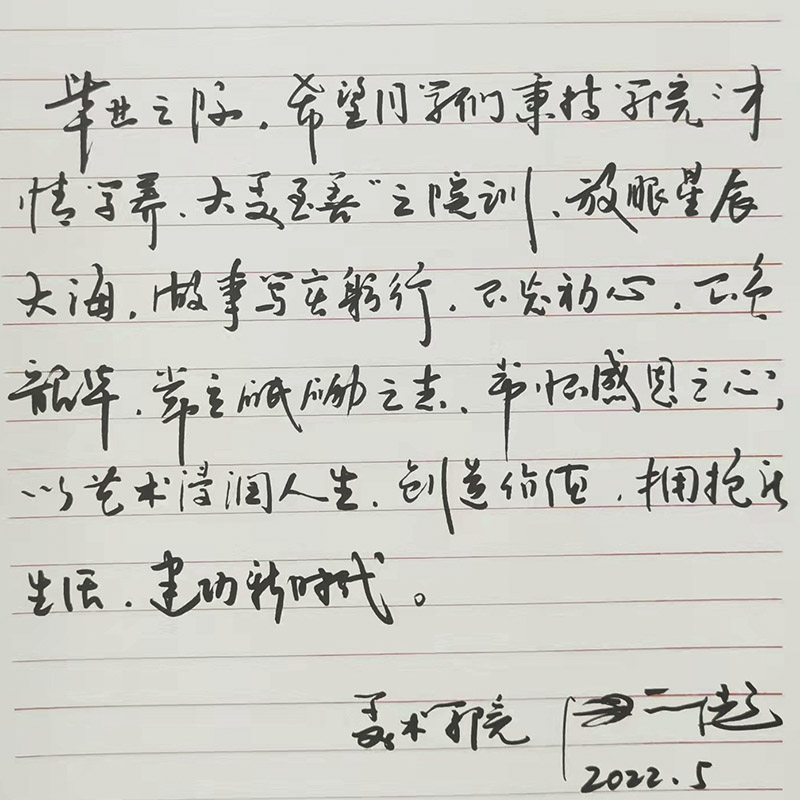 毕业之际，希望同学们秉持学院“才
情学养、大美至善”之院训，放眼星辰
大海，做事实躬行，不忘初心，不负
韶华，常立砥砺之志、常怀感恩之心；
以艺术浸润人生，创造价值，拥抱新
生活，建功新时代。
美术学院
2022.5